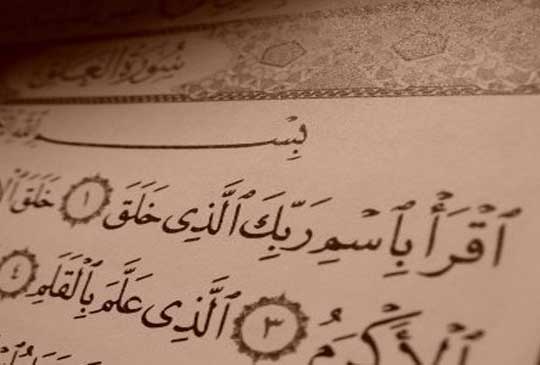 سُورَةُ الْعَلَقِ
بِسْـــــــمِ
ٱقْرَأْ بِٱسْمِ رَبِّكَ ٱلَّذِى خَلَقَ ١ خَلَقَ
ٱلْأَكْرَمُ ٣ ٱلَّذِى عَلَّمَ بِٱلْقَلَمِ ٤